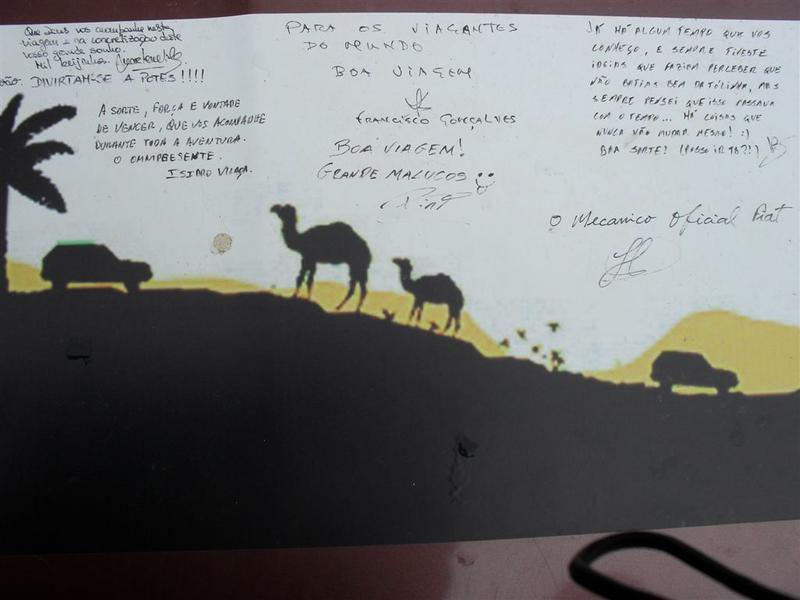 Que Deus vos acompanhe nesta
viagem e na concretização deste
vosso grande sonho.
Mil beijinhos.
DIVIRTAM-SE A POTES!!!!
A SORTE, FORÇA E VONTADE
DE VENCER, QUE VOS ACOMPANHE
DURANTE TODA A AVENTURA.
O OMNIPRESENTE.
ISIDRO VILAÇA.
PARA OS VIAGANTES
DO MUNDO
BOA VIAGEM
FRANCISCO GONÇALVES
BOA VIAGEM!
GRANDE MALUCOS
JÁ HÁ ALGUM TEMPO QUE VOS
CONHEÇO, E SEMPRE TIVESTE
IDEIAS QUE FAZIAM PERCEBER QUE
NÃO BATIAS BEM DA TÓLINHA, MAS
SEMPRE PENSEI QUE ISSO PASSAVA
COM O TEMPO... HÁ COISAS QUE
NUNCA VÃO MUDAR MESMO! :)
BOA SORTE! (POSSO IR TB?!)
O Mecanico Oficial Fiat